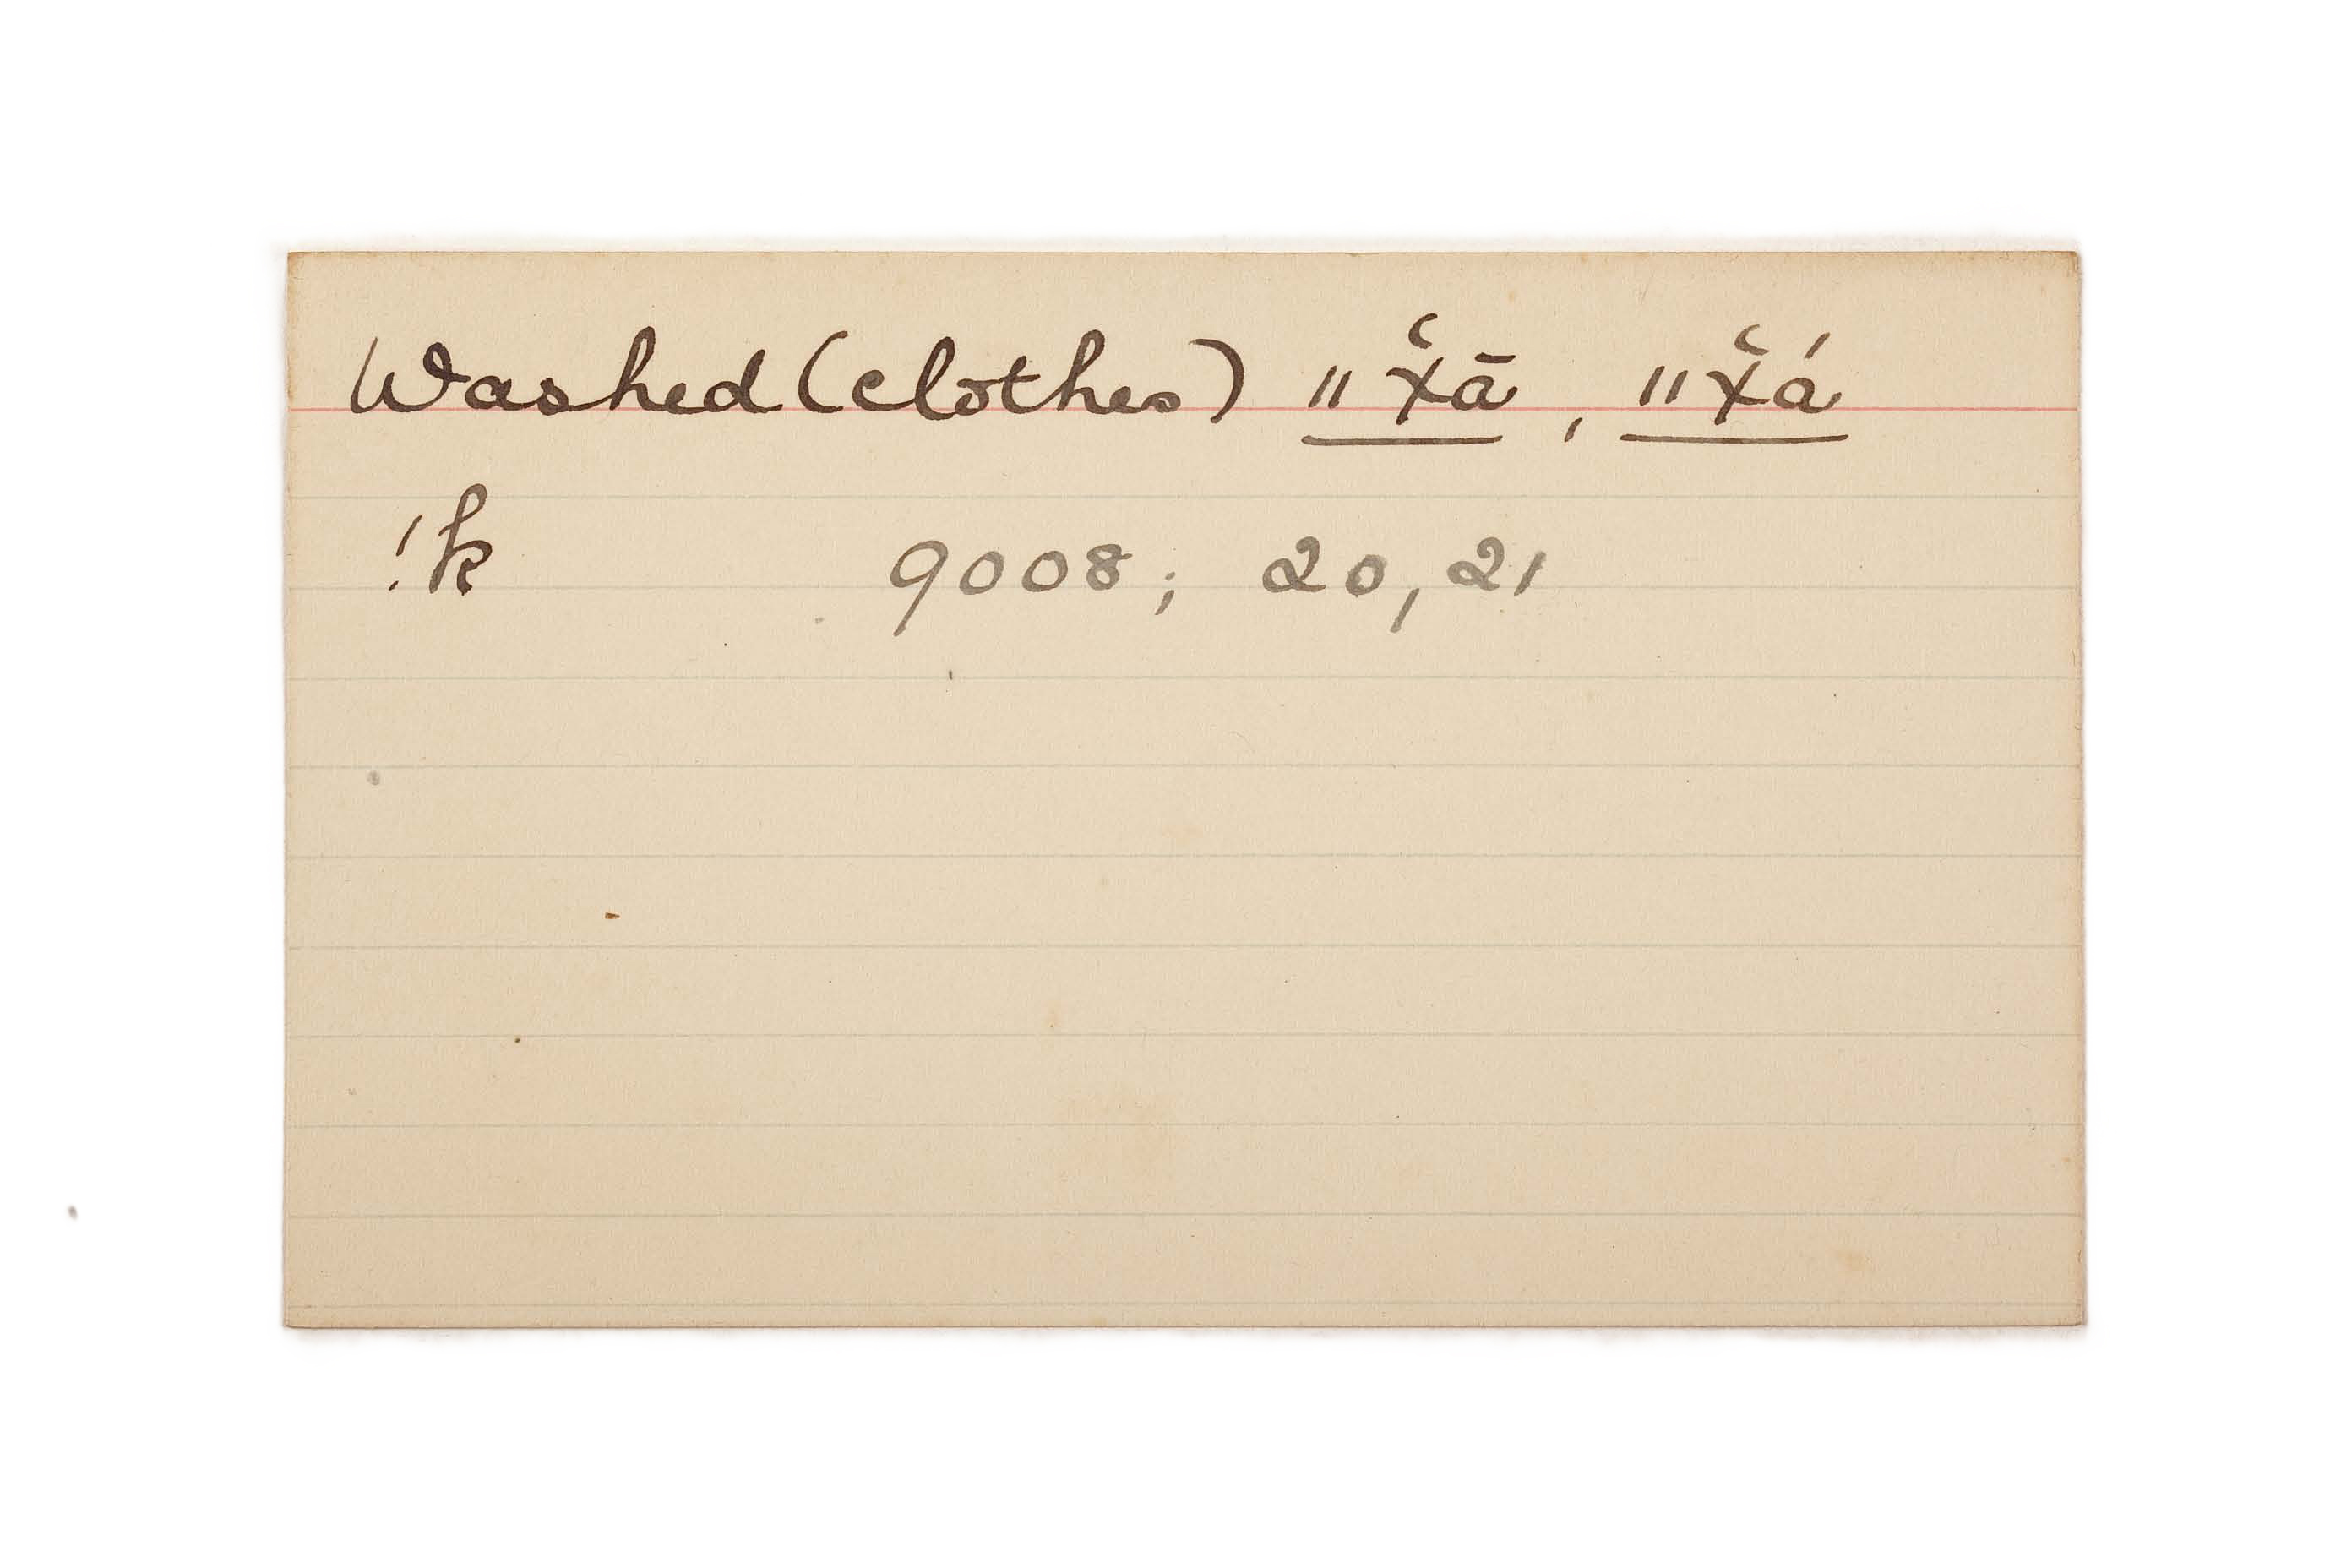 Washed (clothes) ǁχ̆ā, ǁχ̆á
!k 9008; 20, 21